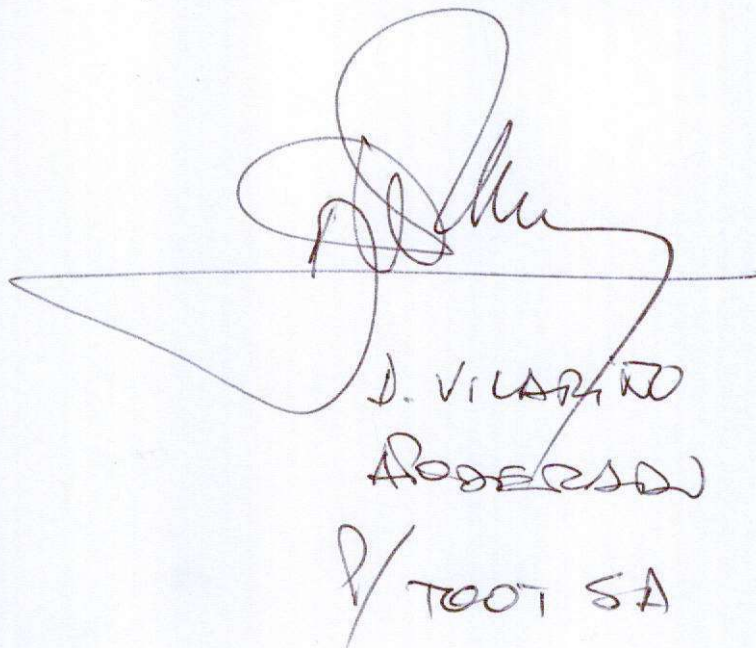 D. VILARIÑO
APODERADO
P/ TOOT SA